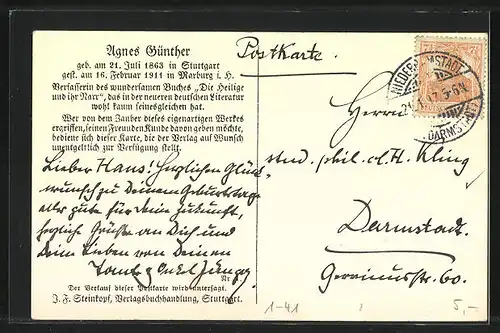 Agnes Günther
geb. am 21. Juli 1863 in Stuttgart
gest. am 16. Februar 1911 in Marburg i. H.
Verfasserin des wundersamen Buches „Die Heilige
und ihr Narr“, das in der neueren deutschen Literatur
wohl kaum seinesgleichen hat.
Wer von dem Zauber dieses eigenartigen Werkes
ergriffen, seinen Freunden Kunde davon geben möchte,
bediene sich dieser Karte, die der Verlag auf Wunsch
unentgeltlich zur Verfügung stellt.
Lieber Hans! Herzlichen Glück-
wunsch zu Deinem Geburtstage
alles gute für Dein Zukunft,
herzliche Grüße an Dich und
Dein Lieben von Deinen
Tante & Onkel
Nr.
Der Verkauf dieser Postkarte wird untersagt.
J. F. Steinkopf, Verlagsbuchhandlung, Stuttgart.
Postkarte.
NIEDER-RAMSTADT
DARMSTADT
Herrn
stud. phil. cl. H. Kling
Darmstadt.
Gervinusstr. 60.
1-41
5,-